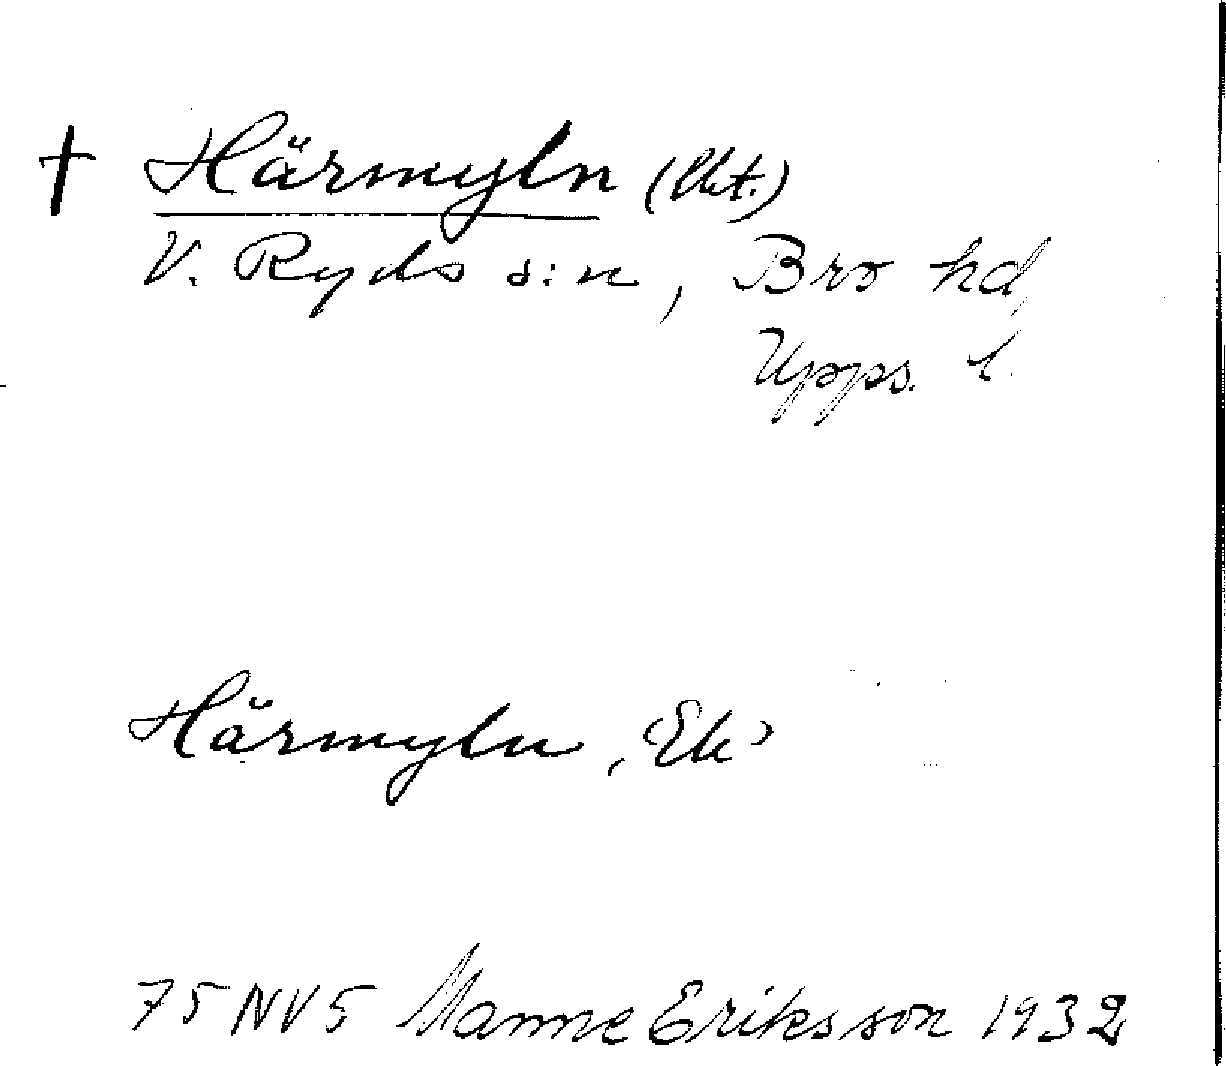 † Härmyln (Ekt.)
V. Ryds s:n, Bro hd,
Upps. l.
Härmyln, ‹Ek›
75 NV 5 Manne Eriksson 1932